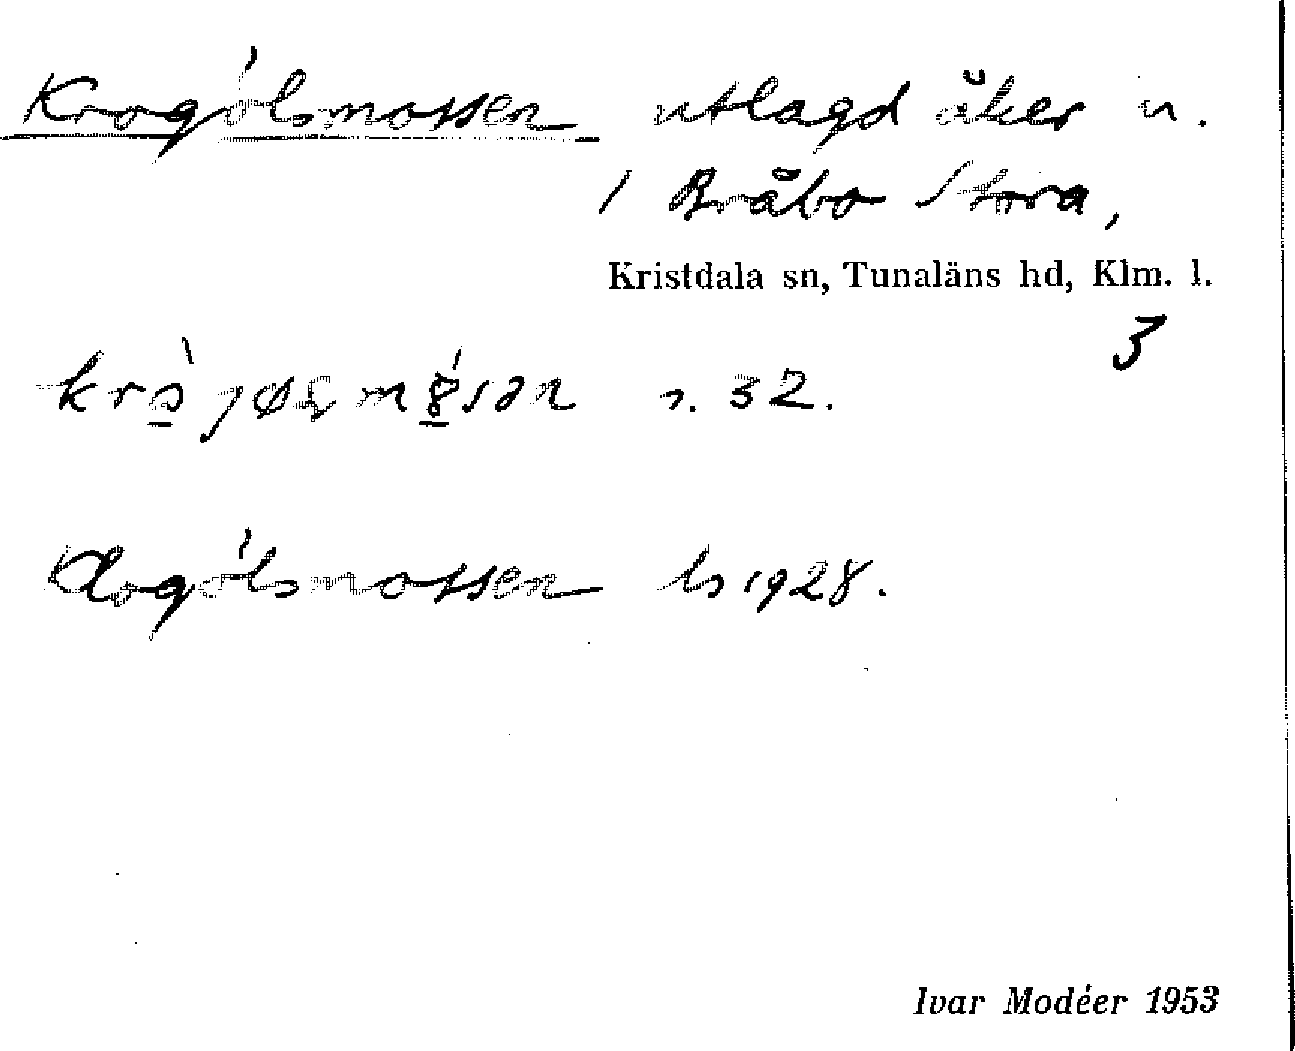 Krogölsmossen utlagd åker n.
1 Bråbo Stora,
Kristdala sn, Tunaläns hd, Klm. l.
3
32.
Krogölsmossen ls 1928.
Ivar Modéer 1953